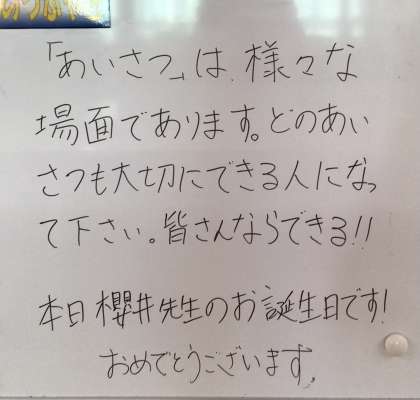 「あいさつ」は、様々な
場面であります。どのあい
さつも大切にできる人になっ
て下さい。皆さんならできる!!
本日櫻井先生のお誕生日です!
おめでとうございます。